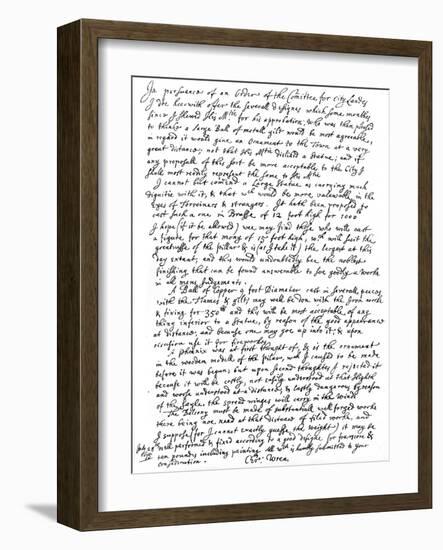 In persuance of an Order of the Comittee for City Landes
I doe heerwith offer the severall designes which some monthes
since I shewed His Mtie for his approbation, who was then pleased
to thinke a large Ball of metall gilt would be most agreeable,
in regard it would give an Ornament to the Town at a very
great distance; not that His Mtie disliked a Statue; and if
any proposall of this sort be more acceptable to the City I
shall most readily represent the same to His Mtie
I cannot but comend a Large Statue as carrying much
dignitie with it, & that wch would be more valewable in the
Eyes of Forreiners & strangers. It hath been proposed to
cast such a one in Brasse of 12 foot high for 1000lb
I hope (if it be allowed) wee may find those who will cast
a figure for that mony of 15 foot high, wch will suit the
greatnesse of the pillar & is (as I take it) the largest at this
day extant; and this would undoubtedly bee the noblest
finishing that can be found answerable to soe goodly a worke
in all mens Judgements.
A Ball of Copper, 9 foot Diameter cast in severall peeces
with the Flames & gilt, may well be don with the Iron worke
& fixing for 350lb and this will be most acceptable of any
thing inferior to a Statue, by reason of the good appearance
at distance, and because one may goe up into it; & upon
occasion use it for fireworkes.
A phœnix was at first thought of, & is the ornament
in the wooden modell of the pillar, wch I caused to be made
before it was begun; but upon second thoughtes I rejected it
because it will be costly, not easily understood at that Highth
and worse understood at a distance, & lastly dangerous by reason
of the sayle the spread winges will carry in the winde.
The Balcony must be made of substantiall well forged worke
there being noe need at that distance of filed worke, and
I suppose (for I cannot exactly guesse the weight) it may be
well performed & fixed according to a good designe for fourscore &
ten poundes including painting. All wch is humbly submitted to your
consideration.
July 28
Chr. Wren